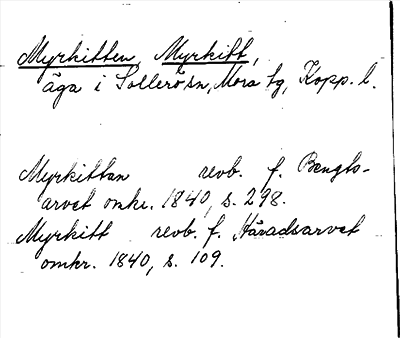 Myrkitten, Myrkitt,
äga i Sollerösn, Mora tg, Kopp. l.
Myrkittan revb. f. Bengts-
arvet omkr. 1840, s. 298.
Myrkitt revb. f. Häradsarvet
omkr. 1840, s. 109.